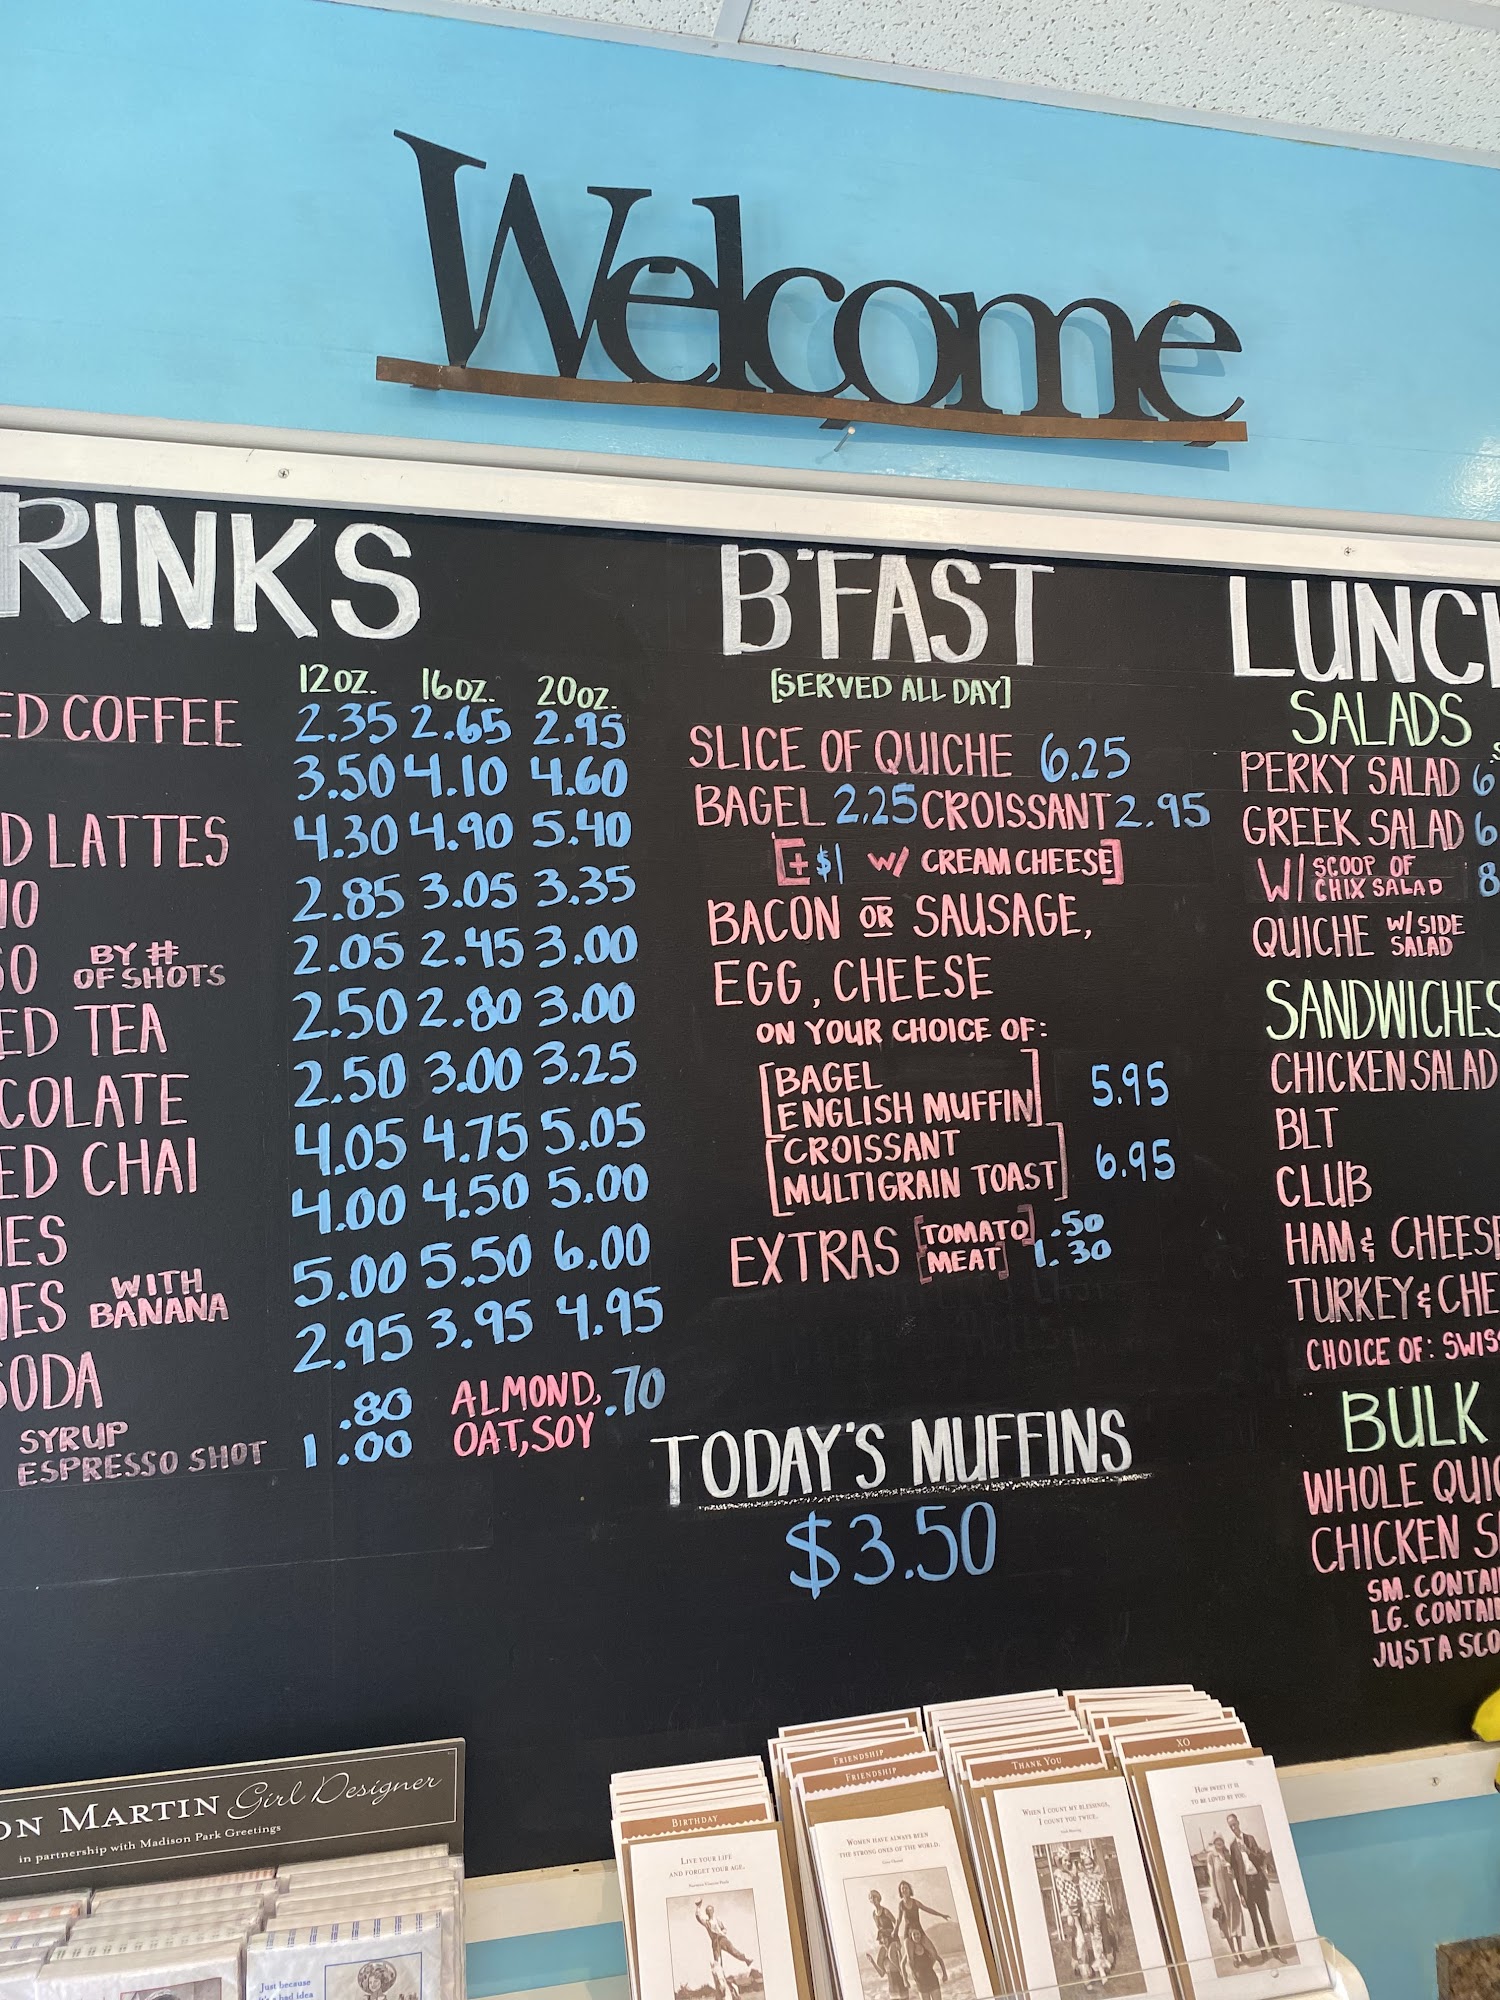 Welcome
RINKS
12 OZ. 16 OZ. 20 OZ.
ED COFFEE 2.35 2.65 2.95
3.50 4.10 4.60
D LATTES 4.30 4.90 5.40
2.85 3.05 3.35
BY # OF SHOTS 2.05 2.45 3.00
ED TEA 2.50 2.80 3.00
COLATE 2.50 3.00 3.25
ED CHAI 4.05 4.75 5.05
IES 4.00 4.50 5.00
IES WITH BANANA 5.00 5.50 6.00
SODA 2.95 3.95 4.95
SYRUP .80
ESPRESSO SHOT 1.00
ALMOND, OAT, SOY .70
B'FAST
[SERVED ALL DAY]
SLICE OF QUICHE 6.25
BAGEL 2.25 CROISSANT 2.95
[+ $1 W/ CREAM CHEESE]
BACON OR SAUSAGE,
EGG, CHEESE
ON YOUR CHOICE OF:
[BAGEL
ENGLISH MUFFIN] 5.95
[CROISSANT
MULTIGRAIN TOAST] 6.95
EXTRAS [TOMATO] .50
[MEAT] 1.30
TODAY'S MUFFINS
$3.50
LUNC
SALADS
PERKY SALAD 6
GREEK SALAD 6
W/ SCOOP OF CHIX SALAD 8
QUICHE W/ SIDE SALAD
SANDWICHES
CHICKEN SALAD
BLT
CLUB
HAM & CHEESE
TURKEY & CHE
CHOICE OF: SWIS
BULK
WHOLE QUIC
CHICKEN S
SM. CONTAI
LG. CONTAI
JUST A SCO
ON MARTIN Girl Designer
in partnership with Madison Park Greetings
Just because
it's a bad idea
BIRTHDAY
LIVE YOUR LIFE
AND FORGET YOUR AGE.
FRIENDSHIP
FRIENDSHIP
WOMEN HAVE ALWAYS BEEN
THE STRONG ONES OF THE WORLD.
THANK YOU
WHEN I COUNT MY BLESSINGS,
I COUNT YOU TWICE.
XO
HOW SWEET IT IS
TO BE LOVED BY YOU.